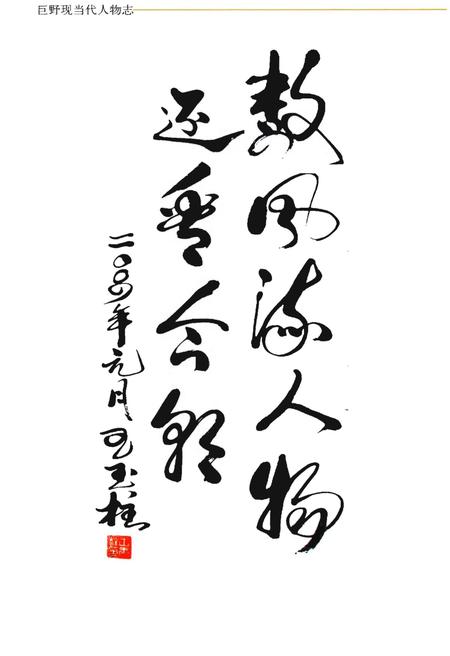 巨野现当代人物志
数风流人物
还看今朝
二〇〇四年元月 玉柱